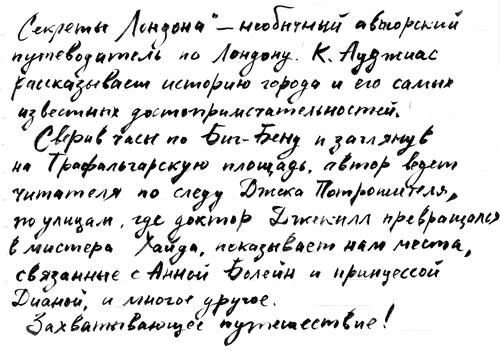 Секреты Лондона" – необычный авторский
путеводитель по Лондону. К. Ауджиас
рассказывает историю города и его самых
известных достопримечательностей.
Сверив часы по Биг-Бену и заглянув
на Трафальгарскую площадь, автор ведет
читателя по следу Джека Потрошителя,
по улицам, где доктор Джекилл превращался
в мистера Хайда, показывает нам места,
связанные с Анной Болейн и принцессой
Дианой, и многое другое.
Захватывающее путешествие!